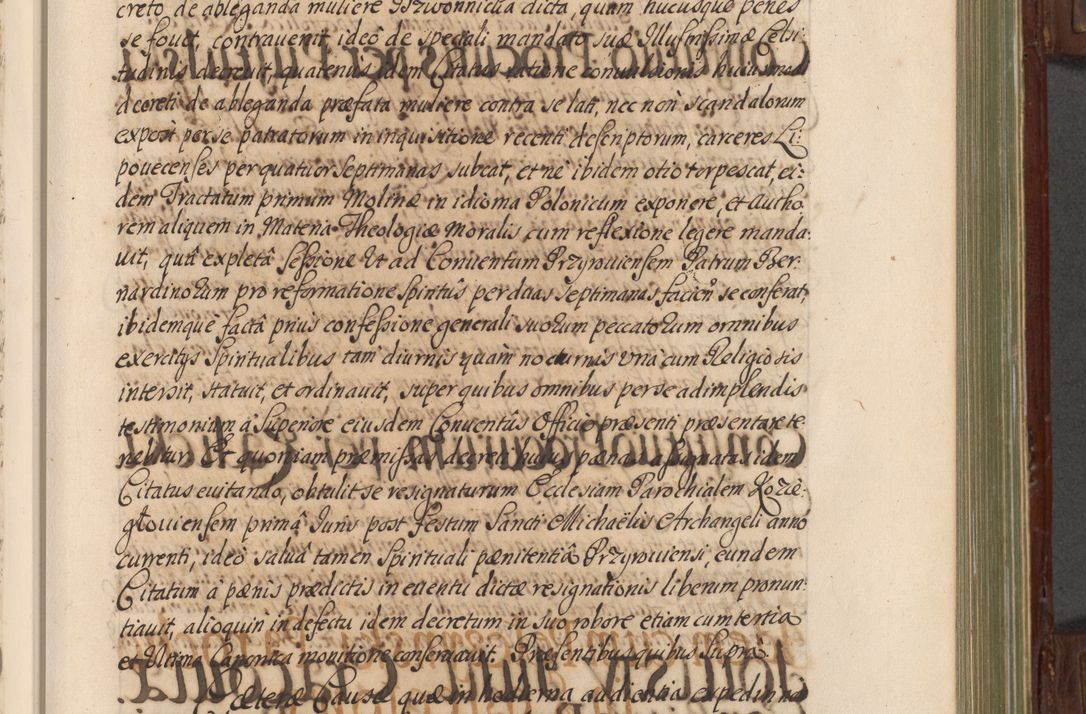 creto de ableganda muliere Dzwonnicha dicta, quam hucusque penes
se fouit, contrauenit, ideo de speciali mandato suæ Illustrissimæ Celsi-
tudinis decreuit, quatenus idem Citatus ratione conuulsionis huiusmodi
decreti de ableganda præfata muliere contra se lati, nec non scandalorum
exposit per se patratorum in inquisitione recenti descriptorum, carceres Li-
pouecenses per quatuor septimanas subeat, et ne ibidem otio torpescat, ei-
dem Tractatum primum Molinæ in idioma Polonicum exponere, et Autho
rem aliquem in Materia Theologiæ moralis cum reflexione legere manda-
uit, quâ expletâ sessione Ut ad Conuentum Przyrouiensem Patrum Ber-
nardinorum pro reformatione spiritûs per duas septimanas facien se conferat,
ibidemque factâ prius confessione generali suorum peccatorum omnibus
exercitijs spiritualibus tam diurnis quam nocturnis una cum Religiosis
intersit, statuit, et ordinauit, super quibus omnibus per se adimplendis
testimonium a Superiore eiusdem Conuentûs Officio præsenti præsentare te-
nebitur. Et quoniam præmissas decretibus pænas assignatas idem
Citatus euitando, obtulit se resignaturum Ecclesiam Parochialem Kozie-
głouiensem primâ Iuris post festum Sancti Michaëlis Archangeli anno
currenti, ideo salua tamen spirituali pænitentiâ Przyrouiensi, eundem
Citatum a pænis prædictis in euentu dictæ resignationis liberum pronun-
tiauit, alioquin in defectu idem decretum in suo robore etiam cum tertia
et Ultima Canonica monitione conseruauit. Præsentibus quibus supra.
Cæteræ Causæ quæ in hodierna audientia expediri na